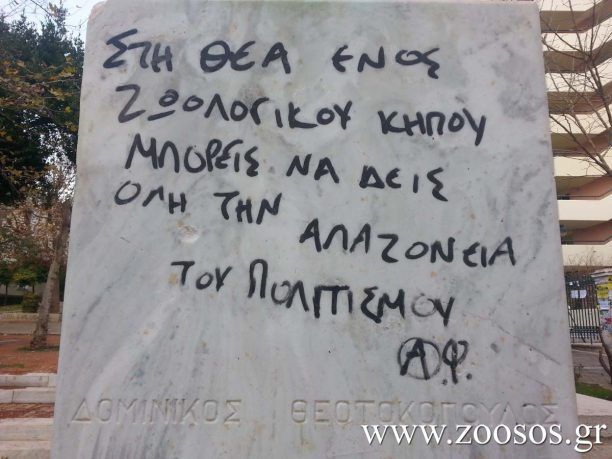 ΣΤΗ ΘΕΑ ΕΝΟΣ
ΖΩΟΛΟΓΙΚΟΥ ΚΗΠΟΥ
ΜΠΟΡΕΙΣ ΝΑ ΔΕΙΣ
ΟΛΗ ΤΗΝ
ΑΛΑΖΟΝΕΙΑ
ΤΟΥ ΠΟΛΙΤΙΣΜΟΥ
Α.Φ.
ΔΟΜΙΝΙΚΟΣ ΘΕΟΤΟΚΟΠΟΥΛΟΣ
www.zoosos.gr